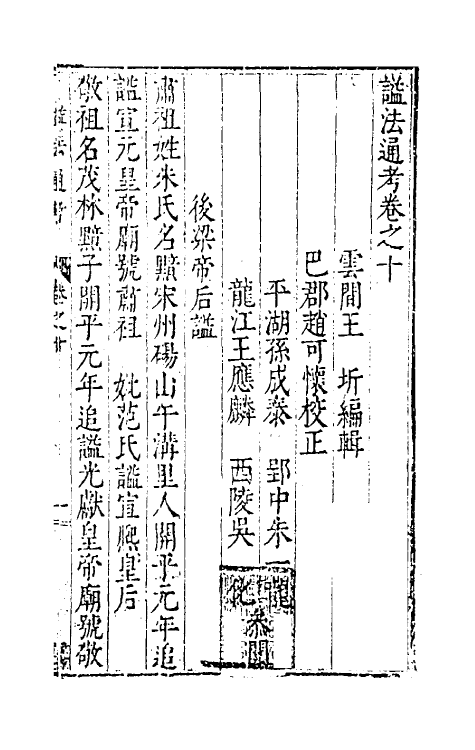 謚法通考卷之十
雲間王　圻編輯
巴郡趙可懷校正
平湖孫成泰　郢中朱一龍
龍江王應麟　西陵吳化參閱
後梁帝后謚
肅祖姓朱氏名黯宋州碭山午溝里人開平元年追
謚宣元皇帝廟號肅祖　妣范氏謚宣熙皇后
敬祖名茂林黯子開平元年追謚光獻皇帝廟號敬
謚法通考　卷之十